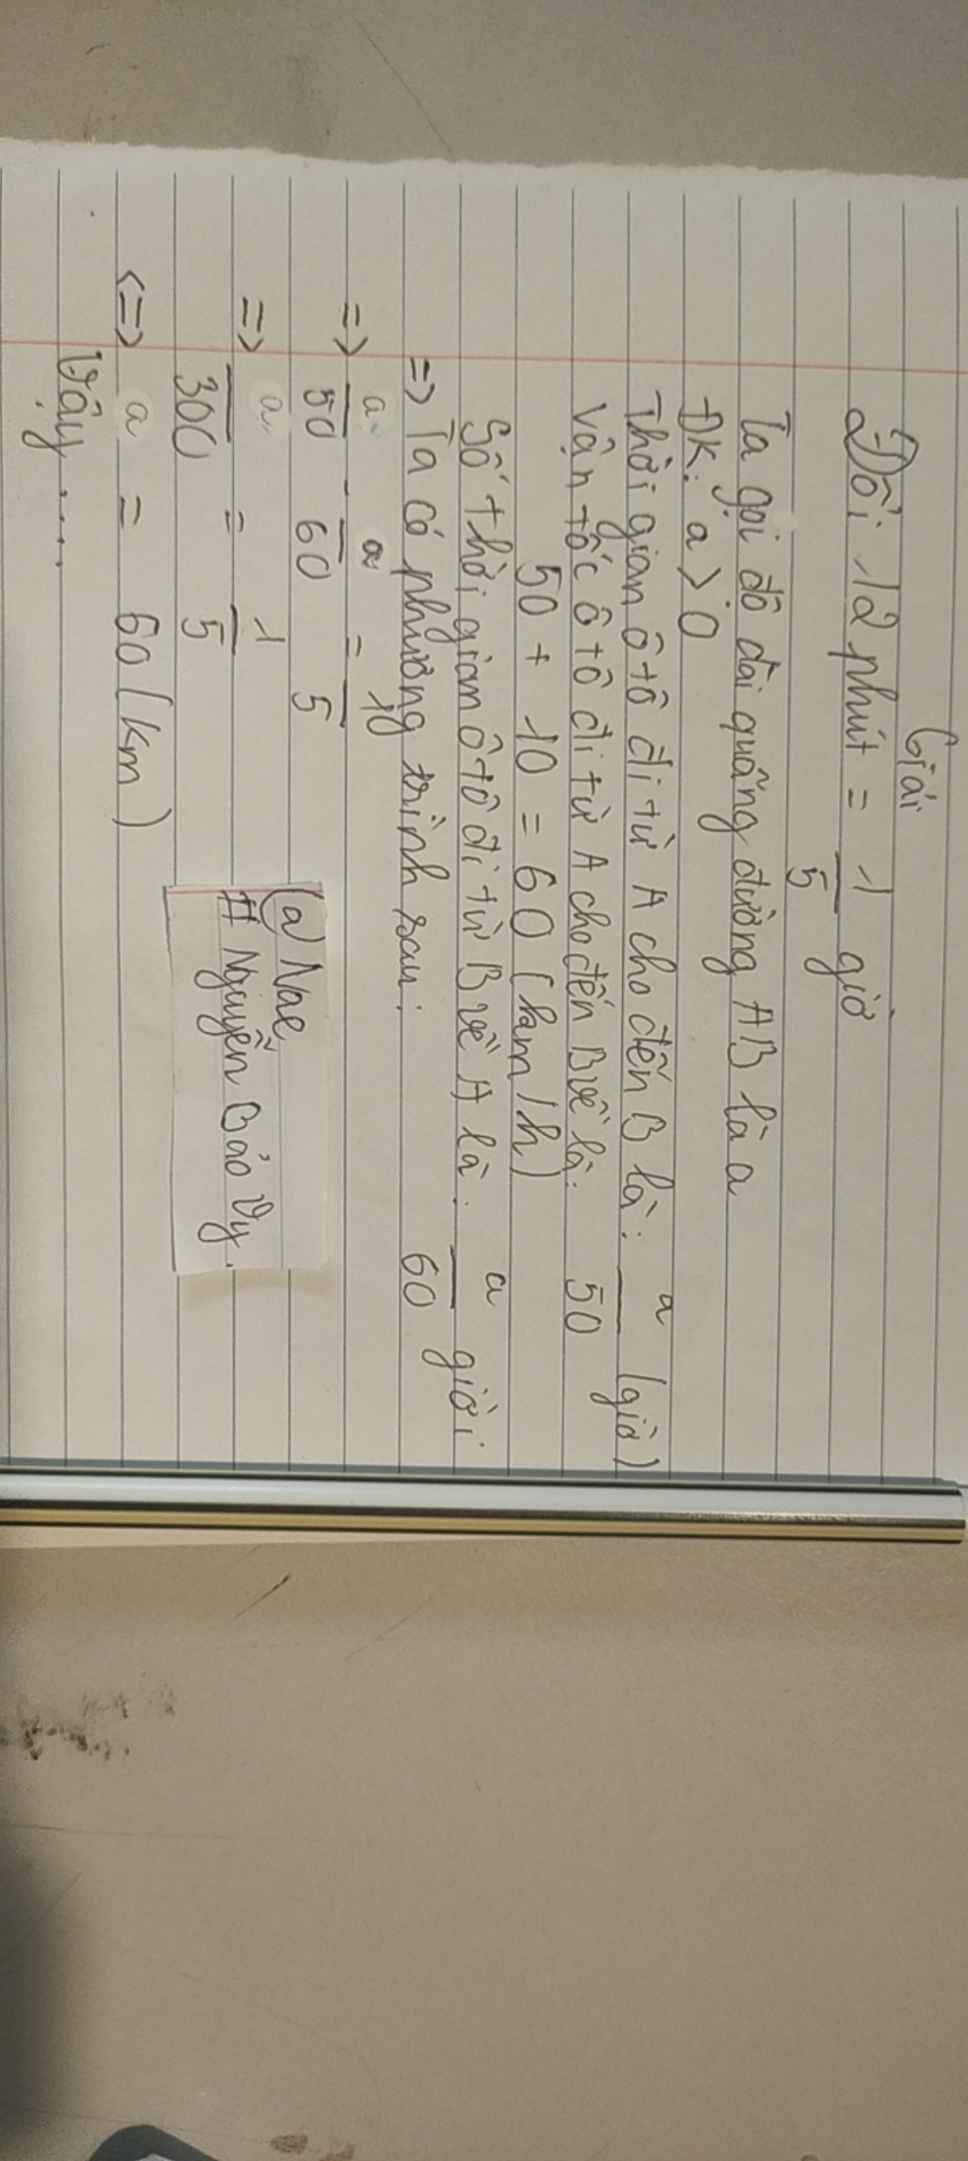 Giải
Đổi 12 phút = 1/5 giờ
Ta gọi độ dài quãng đường AB là a
ĐK: a > 0
Thời gian ô tô đi từ A cho đến B là: a/50 (giờ)
Vận tốc ô tô đi từ A cho đến B về là:
50 + 10 = 60 (km/h)
Số thời gian ô tô đi từ B về A là: a/60 giời
=> Ta có phương trình sau:
=> a/50 - a/60 = 10/5
=> a/300 = 1/5
<=> a = 60 (km)
Vậy ....
@ Nae
# Nguyễn Bảo Vy.